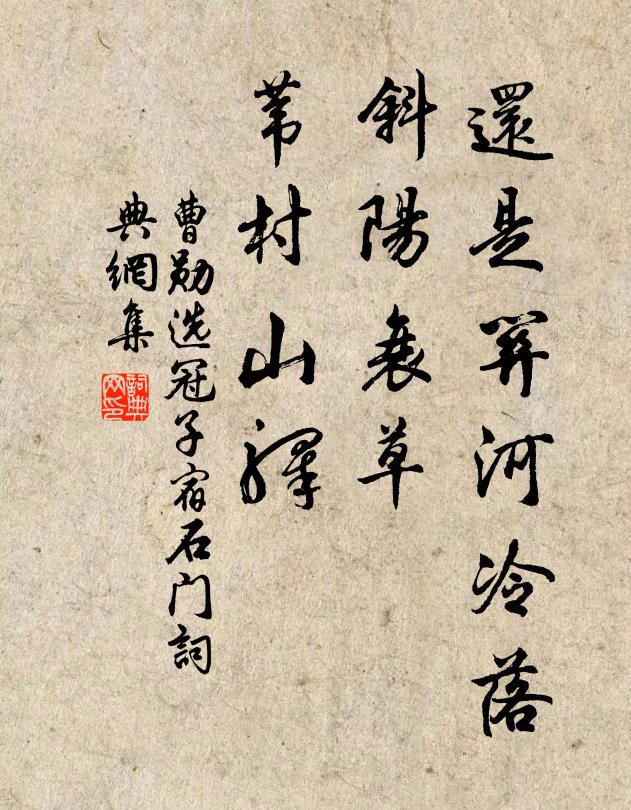 還是關河冷落
斜陽衰草
葦村山驛
曹勛选冠子宿石门詞
典網集
詞典网印